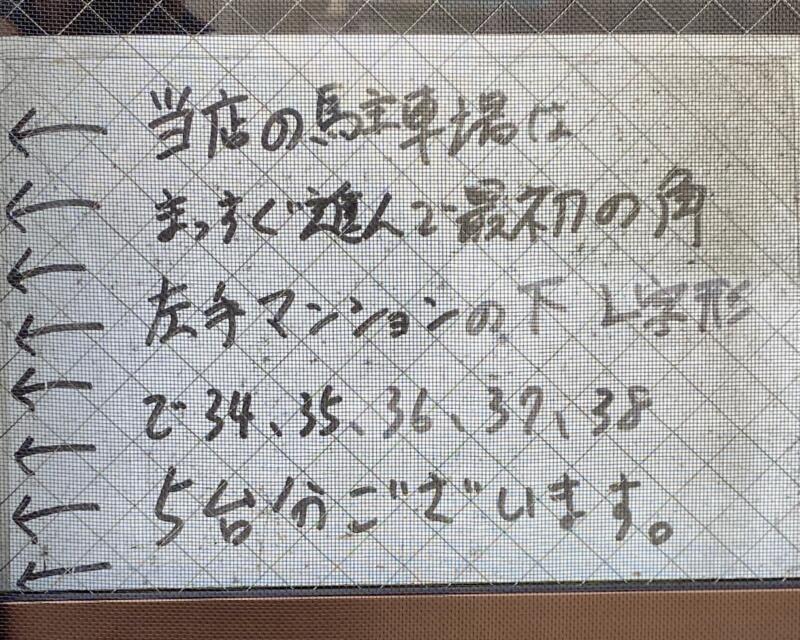 ← 当店の駐車場は
← まっすぐ進んで最初の角
← 左手マンションの下 L字形
← で34、35、36、37、38
← 5台分ございます。